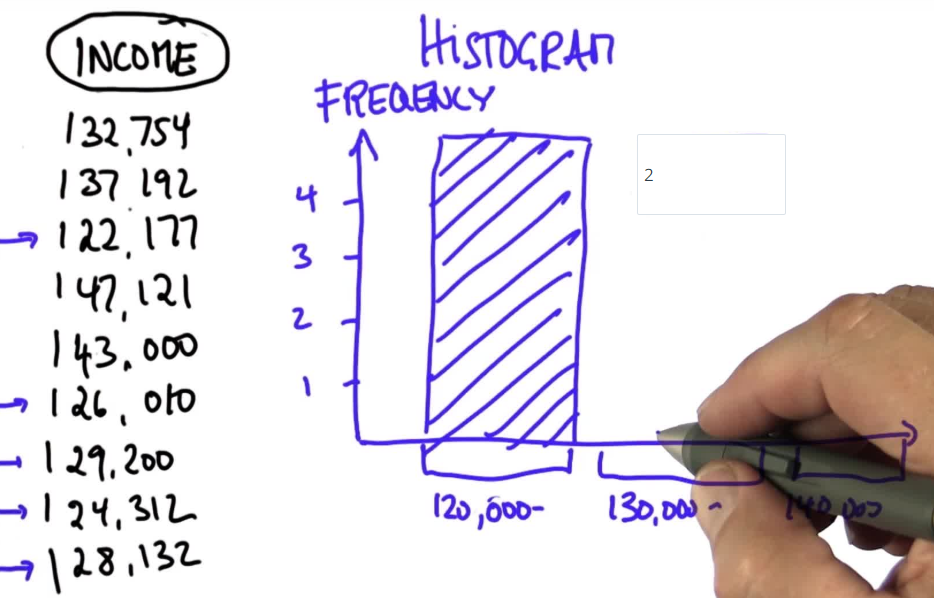 INCOME
132,754
137,192
122,177
147,121
143,000
126,010
129,200
124,312
128,132
HISTOGRAM
FREQENCY
4
3
2
1
2
120,000-
130,000-
140,000